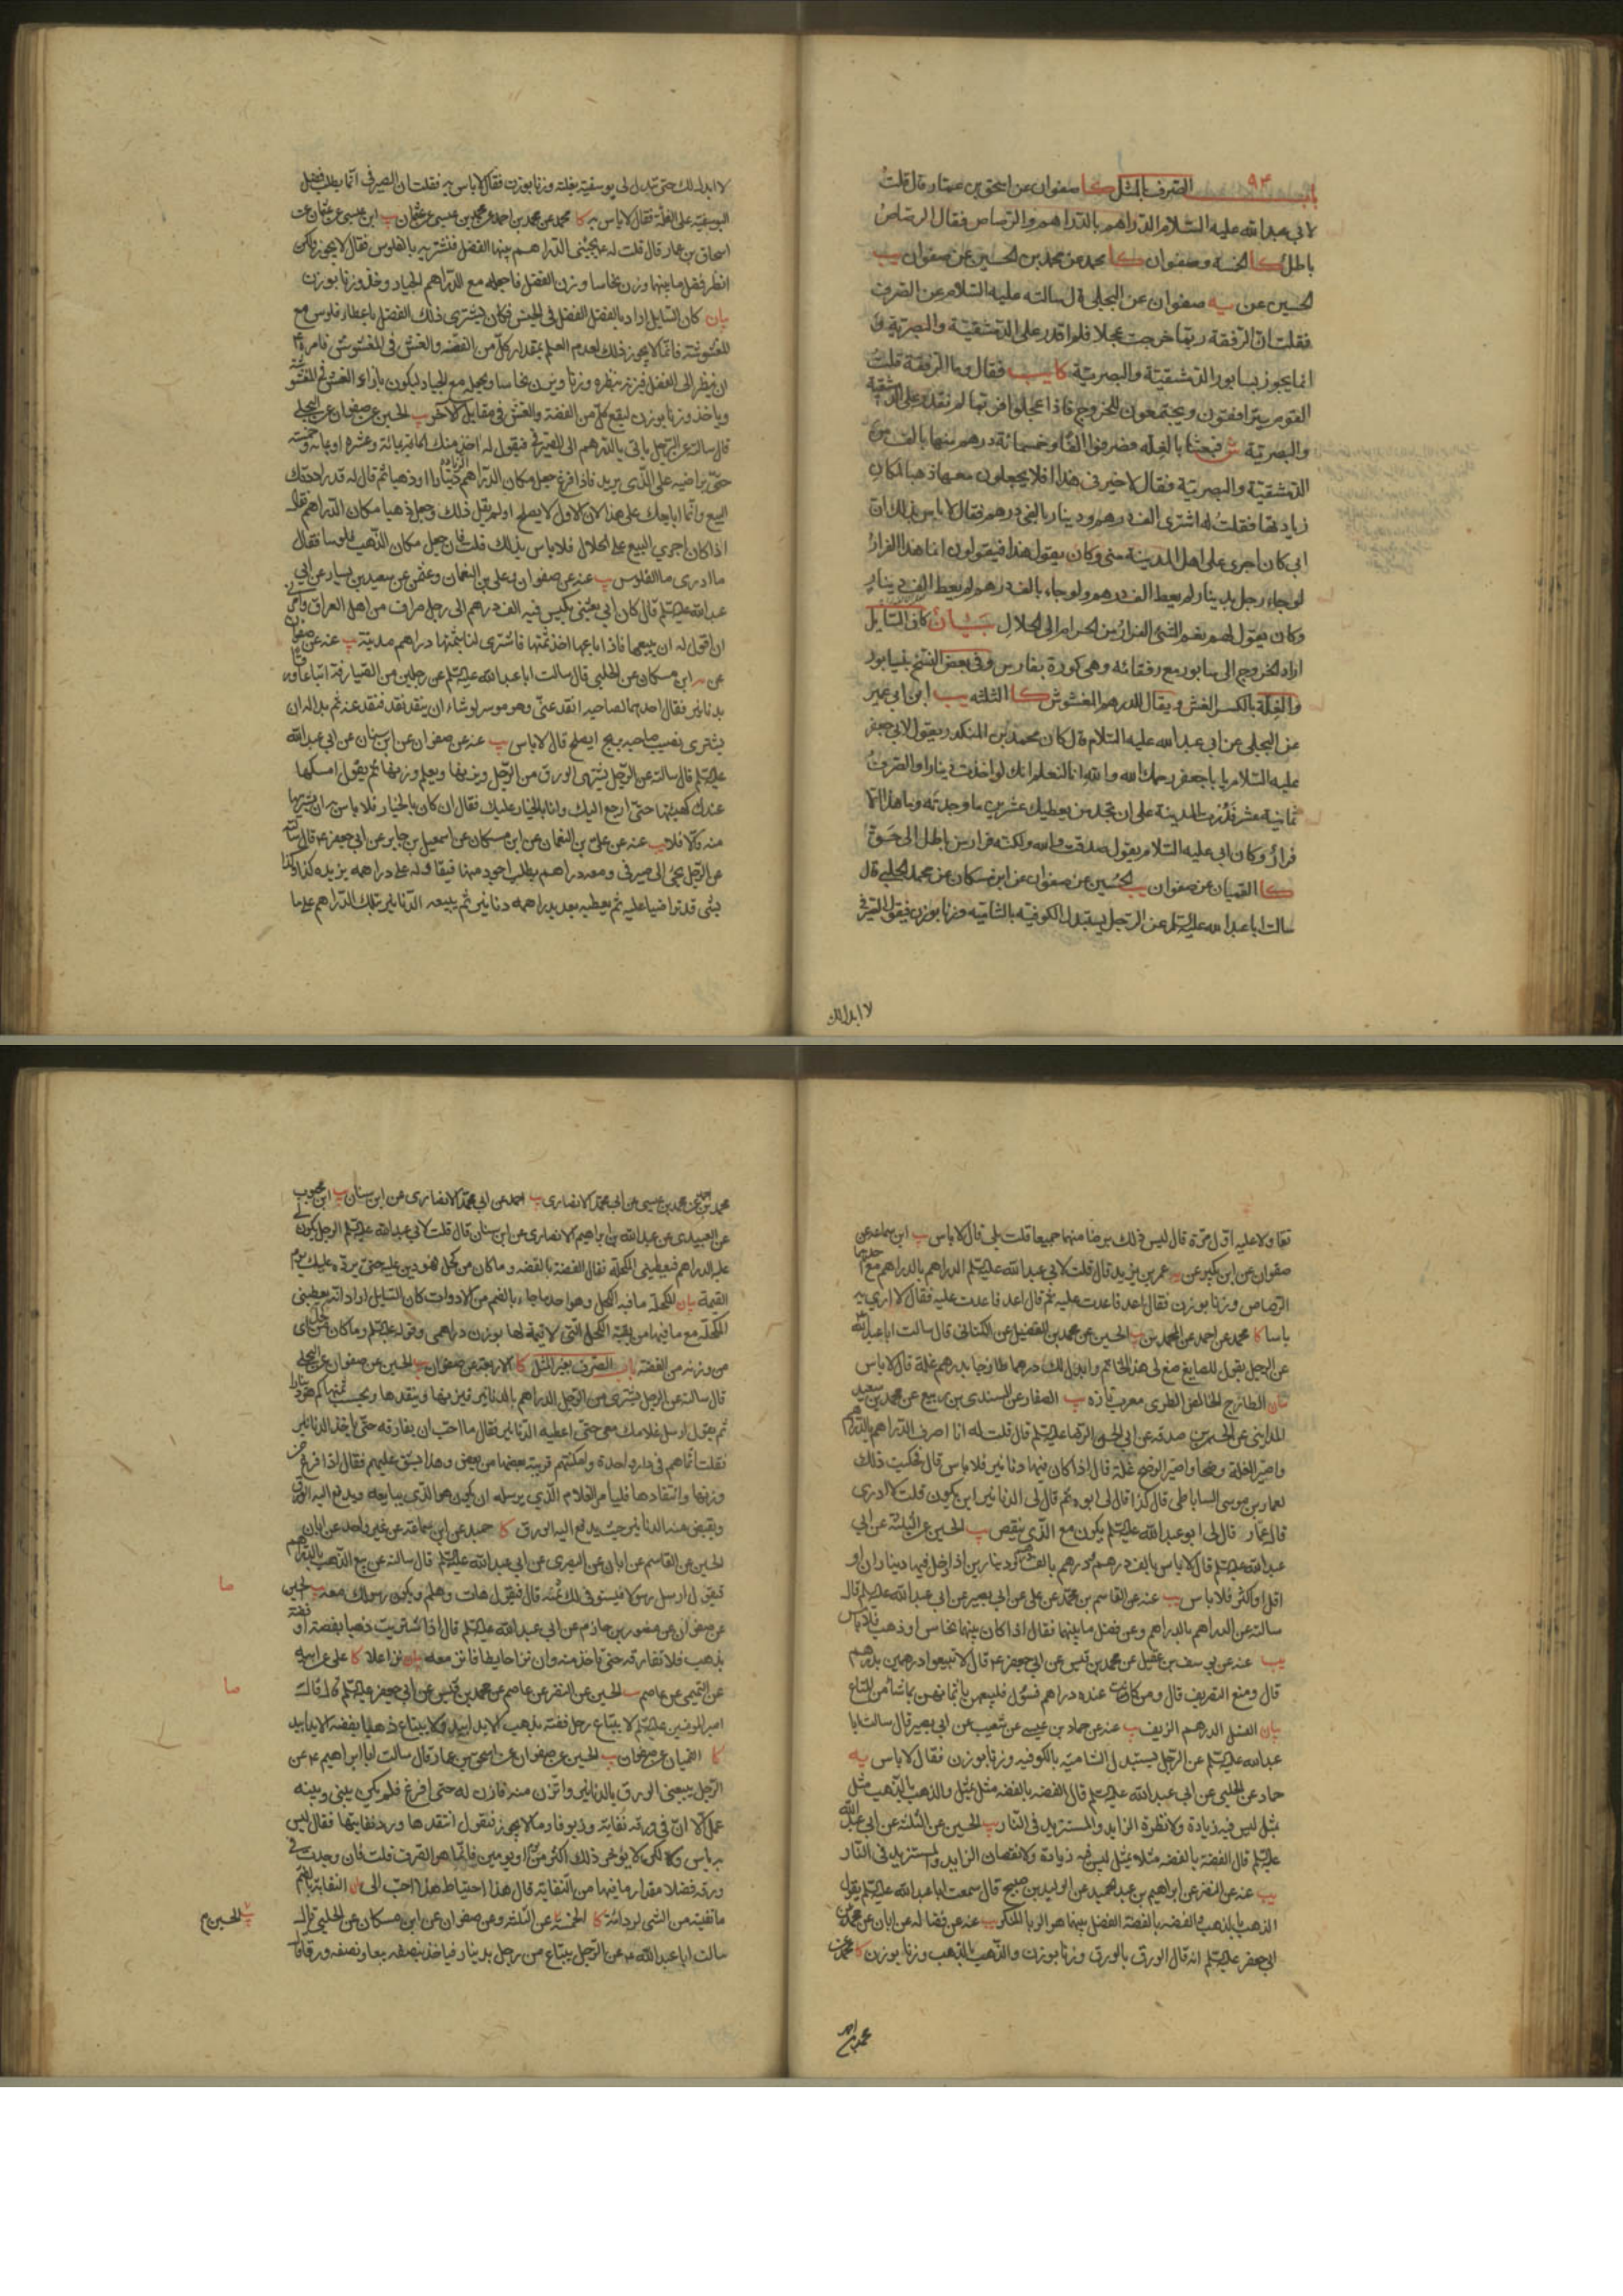 باب ٩٣ الصرف بالمثل كا صفوان عن اسحق بن عمار قال قلت
لابي عبد الله عليه السلام الدراهم بالدراهم والرصاص فقال الرصاص
باطل كا الخمسة وصفوان كا محمد عن محمد بن الحسين عن صفوان يب
الحسين عن يه صفوان عن البجلي قال سالته عليه السلام عن الصرف
فقلت ان الرفقة ربما خرجت عجلا فلم اقدر على الدمشقية والبصرية و
انما يجوز بسابور الدمشقية والبصرية كا يب فقال وما الرفقة قلت
القوم يترافقون ويجتمعون للخروج فاذا عجلوا فربما لم نقدر على الدمشقية
والبصرية ش فبعثنا بالغلة فصرفوا الفا وخمسمائة درهم منها بالف من
الدمشقية والبصرية فقال لا خير في هذا افلا يجعلون معها ذهبا لمكان
زيادتها فقلت له اشتري الف درهم ودينار بالفي درهم فقال لا باس بذلك ان
ابي كان اجرى على اهل المدينة مني وكان يقول هذا فيقولون انما هذا الفرار
لو جاء رجل بدينار لم يعط الف درهم ولو جاء بالف درهم لم يعط الف دينار
وكان يقول لهم نعم الشئ الفرار من الحرام الى الحلال بيان كان السايل
اراد الخروج الى سابور مع رفقائه وهي كورة بفارس وفي بعض النسخ بنيسابور
والغلة بالكسر الغش ويقال الدرهم المغشوش كا الثلثه يب ابن ابي عمير
عن البجلي عن ابي عبد الله عليه السلام قال كان محمد بن المنكدر يقول لابي جعفر
عليه السلام يا با جعفر رحمك الله والله انا لنعلم انك لو اخذت دينارا والصرف
ثمانية عشر فدرت المدينة على ان تجد من يعطيك عشرين ما وجدته وما هذا الا
فرار وكان ابي عليه السلام يقول صدقت والله ولكنه فرار من باطل الى حق
كا القميان عن صفوان يب الحسين عن صفوان عن ابن مسكان عن محمد الحلبي قال
سالت ابا عبد الله عليه السلم عن الرجل يستبدل الكوفية بالشامية وزنا بوزن فيقول الصيرفي
لا ابدل لك
لا ابدل لك حتى تبدل لي يوسفية بغلة وزنا بوزن فقال لا باس به فقلت ان الصيرفي انما يطلب فضل
اليوسفية على الغلة فقال لا باس به كا محمد عن محمد بن احمد عن محمد بن عيسى عن عثمان يب ابن عيسى عن عثمان عن
اسحاق بن عمار قال قلت له تجيئني الدراهم بينها الفضل فنشتريه بالفلوس فقال لا يجوز ولكن
انظر فضل ما بينهما وزن نحاسا وزن الفضل فاجعله مع الدراهم الجياد وخذ وزنا بوزن
بيان كان السايل اراد بالفضل الفضل في الجنس فكان يشتري ذلك الفضل باعطاء فلوس مع
المغشوشة فانما لا يجوز ذلك لعدم العلم بمقدار كل من الفضة والغش في المغشوش فامره
ان ينظر الى الفضل فيزنه بنظره وزنا ويزن نحاسا ويجعل مع الجياد ليكون بازاء الغش في المغشوشة
وياخذ وزنا بوزن ليقع كل من الفضة والغش في مقابل الاخر يب الحسين عن صفوان عن البجلي
قال سالته عن الرجل ياتي بالدراهم الى الصيرفي فيقول له اخذ منك المائة بمائة وعشرة او بمائة وخمسة
حتى يراضيه على الذي يريد فاذا فرغ جعل مكان الدراهم الزيادة دينارا او ذهبا ثم قال له قد راددتك
البيع وانما ابايعك على هذا لان الاول لا يصلح او لم يقل ذلك وجعل ذهبا مكان الدراهم فقال
اذا كان اجرى البيع على الحلال فلا باس بذلك قلت فان جعل مكان الذهب فلوسا فقال
ما ادري ما الفلوس يب عنه عن صفوان وعلي بن النعمان وعثمن عن سعيد بن يسار عن ابي
عبد الله عليه السلم قال كان ابي بعثني بكيس فيه الف درهم الى رجل صراف من اهل العراق وامرني
ان اقول له ان يبيعها فاذا باعها اخذ ثمنها فاشترى لنا بثمنها دراهم مدنية يب عنه عن صفوان
عن ابن مسكان عن الحلبي قال سالت ابا عبد الله عليه السلم عن رجلين من الصيارفة ابتاعا ورقا
بدنانير فقال احدهما لصاحبه انقد عني وهو موسر لو شاء ان ينقد نقد فنقد عنه ثم بدا له ان
يشتري نصيب صاحبه بربح ايصلح قال لا باس يب عنه عن صفوان عن ابن سنان عن ابي عبد الله
عليه السلم قال سالته عن الرجل يشتري الورق من الرجل ويزنها ويعلم وزنها ثم يقول امسكها
عندك كهيئتها حتى ارجع اليك وانا بالخيار عليك فقال ان كان بالخيار فلا باس به ان يشتريها
منه والا فلا يب عنه عن علي بن النعمان عن ابن مسكان عن اسمعيل بن جابر عن ابي جعفر ع قال سالته
عن الرجل يجئ الى صيرفي ومعه دراهم يطلب اجود منها فيقاوله على دراهمه يزيده كذا وكذا
بشئ قد تراضيا عليه ثم يعطيه بعد بدراهمه دنانير ثم يبيعه الدنانير بتلك الدراهم على ما
تقاولا عليه اول مرة قال ليس ذلك برضا منهما جميعا قلت بلى قال لا باس يب ابن سماعه عن
صفوان عن ابن بكير عن يه عمر بن يزيد قال قلت لابي عبد الله عليه السلم الدراهم بالدراهم مع احدهما
الرصاص وزنا بوزن فقال اعد فاعدت عليه ثم قال اعد فاعدت عليه فقال لا ارى به
باسا كا محمد عن احمد عن المحمدين يب الحسين عن محمد بن الفضيل عن الكناني قال سالت ابا عبد الله
عن الرجل يقول للصايغ صغ لي هذا الخاتم وابدل لك درهما طازجا بدرهم غلة قال لا باس
بيان الطازج الخالص الطري معرب تازه يب الصفار عن السندي بن ربيع عن محمد بن سعيد
المدايني عن الحسن بن صدقه عن ابي الحسن الرضا عليه السلم قال قلت له انا اصرف الدراهم بالدراهم
واصير الغلة وضحا واصير الوضح غلة قال اذا كان فيها دنانير فلا باس قال فحكيت ذلك
لعمار بن موسى الساباطي قال كذا قال لي ابوه ثم قال لي الدنانير اين يكون قلت لا ادري
قال عمار قال لي ابو عبد الله عليه السلم يكون مع الذي ينقص يب الحسين عن الثلثه عن ابي
عبد الله عليه السلم قال لا باس بالف درهم ودرهم بالف درهم ودينارين اذا دخل فيها ديناران او
اقل او اكثر فلا باس يب عنه عن القاسم بن محمد عن علي عن ابي بصير عن ابي عبد الله عليه السلم قال
سالته عن الدراهم بالدراهم وعن فضل ما بينهما فقال اذا كان بينهما نحاس او ذهب فلا باس
يب عنه عن يوسف بن عقيل عن محمد بن قيس عن ابي جعفر ع قال لا تبيعوا درهمين بدرهم
قال ومنع التصريف قال ومن كانت عنده دراهم فسول فليبعهن باثمانهن بما شاء من المتاع
بيان الفسل الدرهم الزيف يب عنه عن حماد بن عيسى عن شعيب عن ابي بصير قال سالت ابا
عبد الله عليه السلم عن الرجل يستبدل الشامية بالكوفيه وزنا بوزن فقال لا باس يه
حماد عن الحلبي عن ابي عبد الله عليه السلم قال الفضه بالفضه مثل بمثل والذهب بالذهب مثل
بمثل ليس فيه زيادة ولا نظرة الزايد والمستزيد في النار يب الحسين عن الثلثه عن ابي عبد الله
عليه السلم قال الفضة بالفضه مثلا بمثل ليس فيه زيادة ولا نقصان الزايد والمستزيد في النار
يب عنه عن النضر عن ابراهيم بن عبد الحميد عن الوليد بن صبيح قال سمعت ابا عبد الله عليه السلم يقول
الذهب بالذهب والفضه بالفضة الفضل بينهما هو الربا المنكر يب عنه عن فضاله عن ابان عن محمد عن
ابي جعفر عليه السلم انه قال الورق بالورق وزنا بوزن والذهب بالذهب وزنا بوزن كا محمد عن
محمد بن احمد
محمد بن احمد عن محمد بن عيسى عن ابي محمد الانصاري يب احمد عن ابي محمد الانصاري عن ابن سنان يب ابن محبوب
عن العبيدي عن عبد الله بن ابراهيم الانصاري عن ابن سنان قال قلت لابي عبد الله عليه السلم الرجل يكون لي
عليه الدراهم فيعطيني المكحلة فقال الفضة بالفضه وما كان من كحل فهو دين عليه حتى يرده عليك يوم
القيمة بيان المكحلة ما فيه الكحل وهو احد ما جاء بالضم من الادوات كان السايل اراد انه يعطيني
المكحلة مع ما فيها من بقية الكحل التي لا قيمة لها بوزن دراهمي وقوله عليه السلم وما كان من كحل اي
من وزنه من الفضة باب الصرف بغير المثل كا الاربعة عن صفوان يب الحسين عن صفوان عن البجلي
قال سالته عن الرجل يشتري من الرجل الدراهم بالدنانير فيزنها وينقدها ويحسب ثمنها كم هو دينارا
ثم يقول ارسل غلامك معي حتى اعطيه الدنانير فقال ما احب ان يفارقه حتى ياخذ الدنانير
فقلت انما هم في دار واحدة وامكنتهم قريبة بعضها من بعض وهذا يشق عليهم فقال اذا فرغ من
وزنها وانتقادها فليامر الغلام الذي يرسله ان يكون هو الذي يبايعه ويدفع اليه الورق
ويقبض منه الدنانير حيث يدفع اليه الورق كا حميد عن ابن سماعة عن غير واحد عن ابان يب
الحسين عن القاسم عن ابان عن البصري عن ابي عبد الله عليه السلم قال سالته عن بيع الذهب بالدراهم
فيقول ارسل رسولا فيستوفي لك ثمنه قال فيقول هات وهلم ويكون رسولك معه يب الحسين
عن صفوان عن منصور بن حازم عن ابي عبد الله عليه السلم قال اذا اشتريت ذهبا بفضة او فضة
بذهب فلا تفارقه حتى تاخذ منه وان نزا حايطا فانز معه بيان نزا علا كا علي عن ابيه
عن التميمي عن عاصم يب الحسين عن النضر عن عاصم عن محمد بن قيس عن ابي جعفر عليه السلم قال قال
امير المؤمنين عليه السلم لا يبتاع رجل فضة بذهب الا يدا بيد ولا يبتاع ذهبا بفضه الا يدا بيد
كا القميان عن صفوان يب الحسين عن صفوان عن اسحق بن عمار قال سالت ابا ابراهيم ع عن
الرجل يبيعني الورق بالدنانير واتزن منه فازن له حتى افرغ فلم يكن بيني وبينه
عمل الا ان في ورقه نفاية وزيوفا وما لا يجوز فيقول انتقدها ورد نفايتها فقال ليس
به باس ولكن لا يؤخر ذلك اكثر من يوم او يومين فانما هو الصرف قلت فان وجدت في
ورقه فضلا مقدار ما فيها من النفاية قال هذا احتياط هذا احب الي بيان النفاية بالضم
ما نفيته من الشئ لرداءته كا الخمسة عن الثلثة وعن صفوان عن ابن مسكان عن الحلبي قال
سالت ابا عبد الله ع عن الرجل يبتاع من رجل بدينار فياخذ بنصفه بيعا وبنصفه ورقا قال
صا
صا
يب الحسين